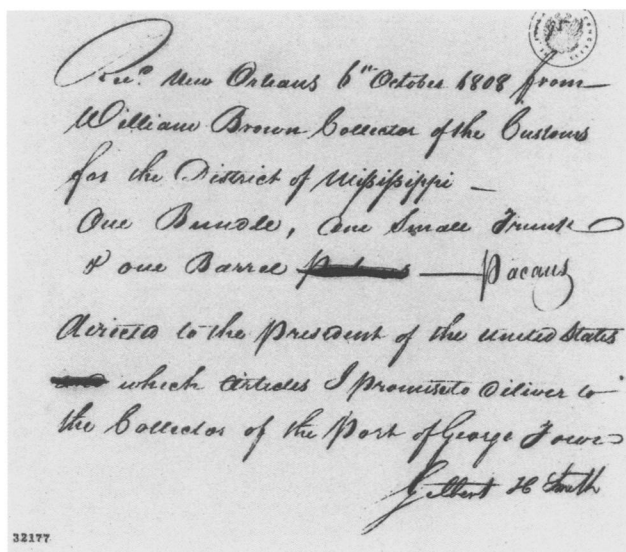 Recd. New Orleans 6th October 1808 from
William Brown Collector of the Customs
for the District of Mississippi —
One Bundle, One Small Trunk
& one Barrel — Pacans
directed to the President of the United States
which articles I promise to deliver to
the Collector of the Port of George Town
Gilbert H Smith
32177